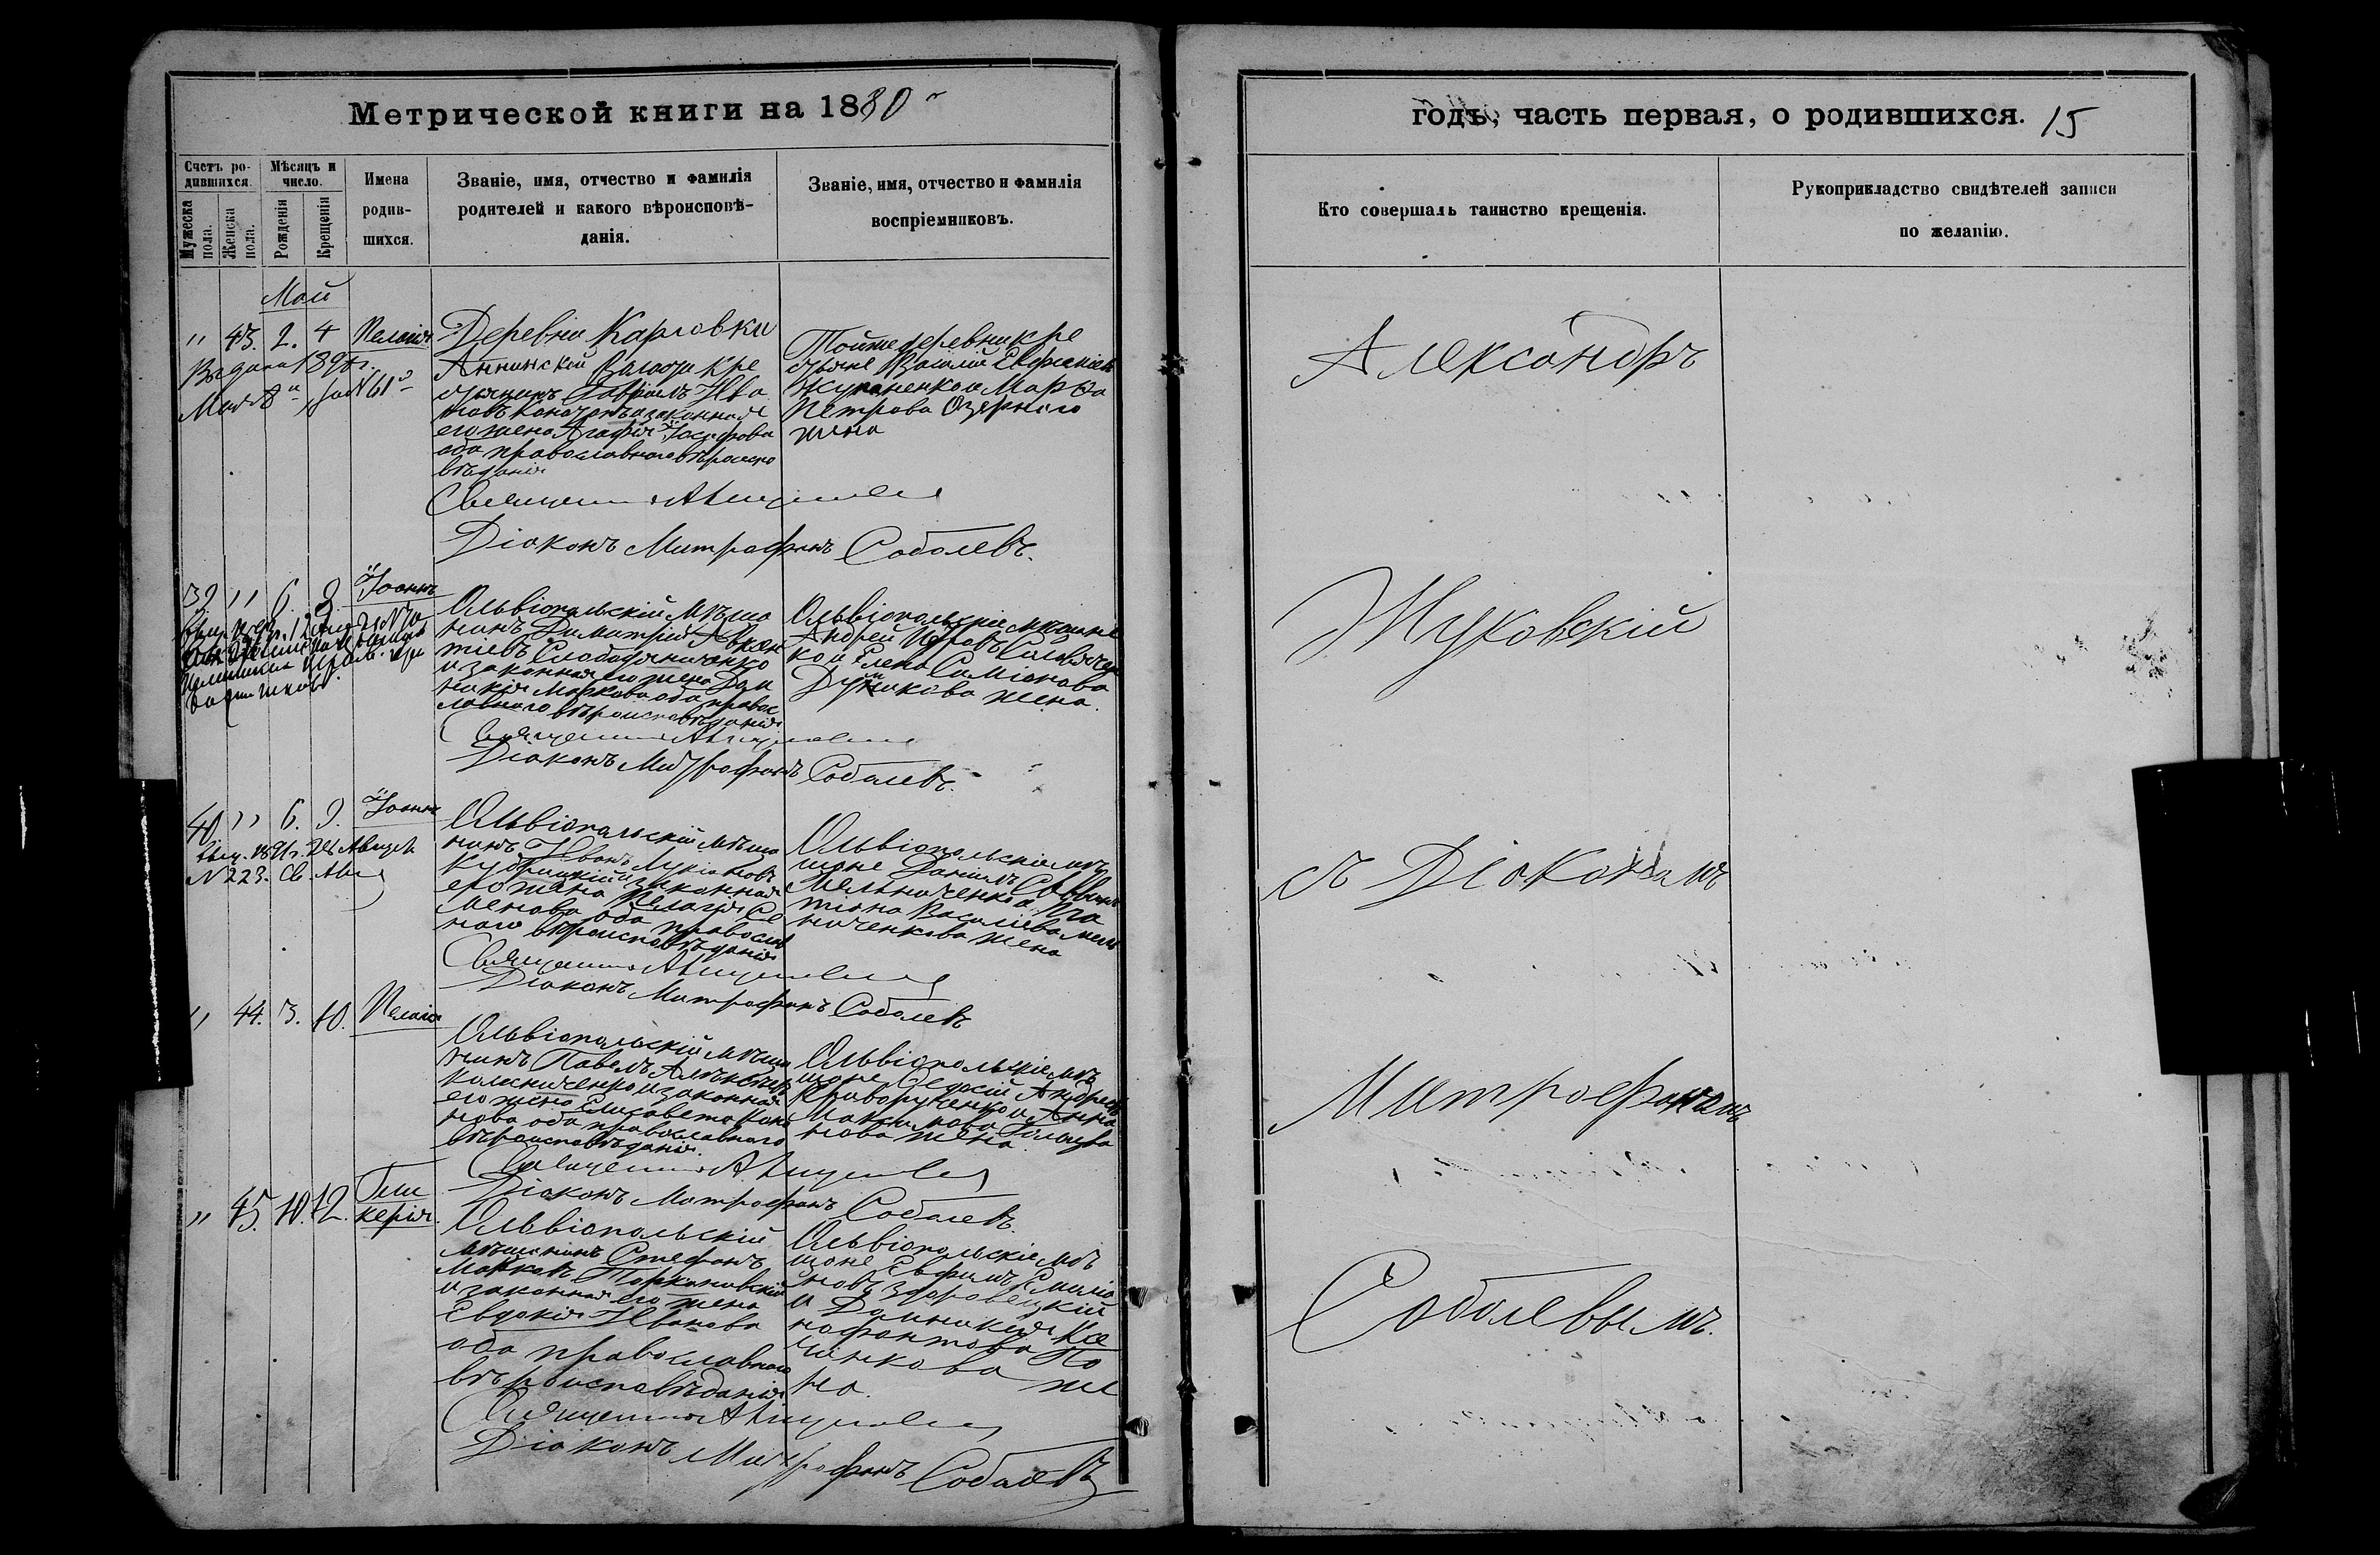 Метрической книги на 1880 г
годъ, часть первая, о родившихся. 15
Счетъ ро-
дившихся.
Мѣсяцъ и
число.
Мужеска
пола.
Женска
пола.
Рожденія
Крещенія
Имена
родив-
шихся.
Званіе, имя, отчество и фамилія
родителей и какого вѣроисповѣ-
данія.
Званіе, имя, отчество и фамилія
воспріемниковъ.
Кто совершалъ таинство крещенія.
Рукоприкладство свидѣтелей записи
по желанію.
Май
" 43. 2. 4 Пелагія
Деревни Карловки
Аннинской Волости кре
стьянинъ Гавріилъ Ива
новъ законная
его жена Агафія Іосифова
оба православнаго вѣроиспо
вѣданія
Тойже деревни кре
стьяне Василій
и Марѳа
Петрова Озерного
жена
Выдана 189
Мая 8 за № 61
Священник
Діаконъ Митрофанъ Соболевъ.
39. " 6. 9 Іоаннъ
Ольвіопольскій мѣща
нинъ Димитрій
и законная его жена Дом
никія Маркова оба правос
лавнаго вѣроисповѣданія
Ольвіопольскіе мѣщане
Андрей
ко и Елена Симіонова
жена.
Священник
Діаконъ Митрофанъ Соболевъ.
40 " 6. 9. Іоаннъ
Ольвіопольскій мѣща
нинъ Иванъ Лукіановъ
законная
его жена Пелагія Се
менова оба православ
наго вѣроисповѣданія
Ольвіопольскіе мѣ
щане Даніилъ Саввинъ
Мельниченко и Та
тіана Васильева Мель
ниченкова жена
выд. 1891 г. 28 Август
№ 223. Св.
Священник
Діаконъ Митрофанъ Соболевъ
" 44. 3. 10. Пелагія
Ольвіопольскій мѣща
нинъ Павелъ Алексѣевъ
Колесниченко и законная
его жена Елисавета
нова оба православнаго
вѣроисповѣданія.
Ольвіопольскіе мѣ
щане Ѳедосій Андреевъ
Криворученко и Анна
Максимова
нова жена
Священник
Діаконъ Митрофанъ Соболевъ.
" 45. 10. 12. Гли
керія.
Ольвіопольскій
мѣщанинъ Стефанъ
Марковъ Торкановскій
и законная его жена
Евдокія Иванова
оба православнаго
вѣроисповѣданія
Ольвіопольскіе мѣ
щане Евфимъ Емиліа
новъ Здоровецкій
и Домникія Ксе
нофонтова По
чинкова же
на.
Священник
Діаконъ Митрофанъ Соболевъ
Александръ
Жуковскій
съ Діакономъ
Митрофаномъ
Соболевымъ.